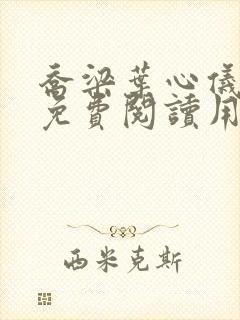 喬梁葉心儀
免費閱讀用
西米克斯